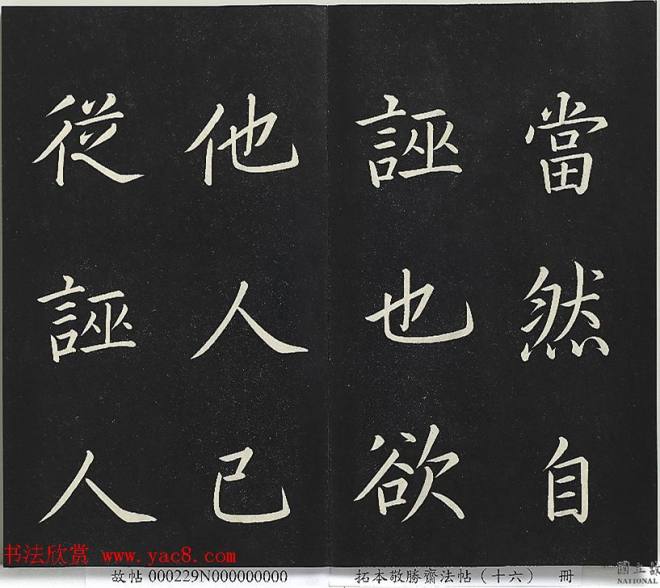 當然自
誣也欲
他人己
從誣人
书法欣赏 www.yac8.com
故帖 000229N000000000
拓本敬勝齋法帖（十六） 冊
國立
NATIONA